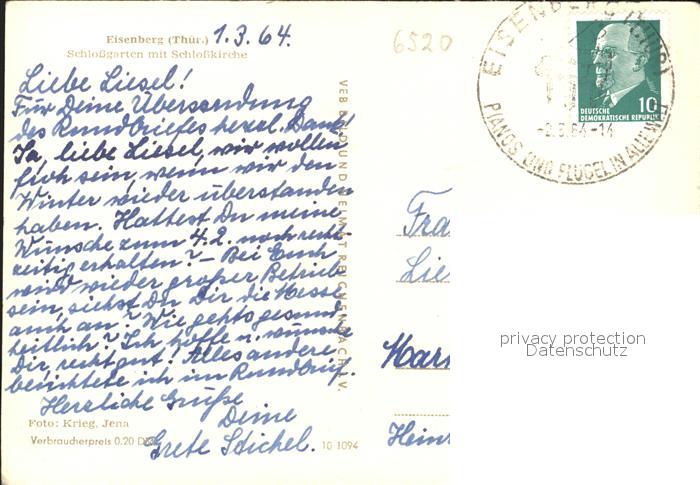 Eisenberg (Thür.) 1.3.64.
Schloßgarten mit Schloßkirche
Liebe Liesel!
Für Deine Übersendung
des Rundbriefes herzl. Dank!
Ja, liebe Liesel, wir wollen
froh sein, wenn wir den
Winter wieder überstanden
haben. Hattest Du meine
Wünsche zum 4.2. noch recht-
zeitig erhalten? – Bei Euch
wird wieder großer Betrieb
sein, siehst Du Dir die Messe
auch an? Wie geht's gesund-
heitlich? Ich hoffe u. wünsche
Dir, recht gut! Alles andere
berichtete ich im Rundbrief.
Herzliche Grüße
Deine
Grete Stichel.
Foto: Krieg, Jena
Verbraucherpreis 0.20 DM
10 1094
VEB BILD UND HEIMAT REICHENBACH I. V.
6520
EISENBERG (THÜR)
-2.3.64-14
PIANOS UND FLÜGEL IN ALLE WELT
10
DEUTSCHE
DEMOKRATISCHE REPUBLIK
Fra
Lie
privacy protection
Datenschutz
Mar
Hein